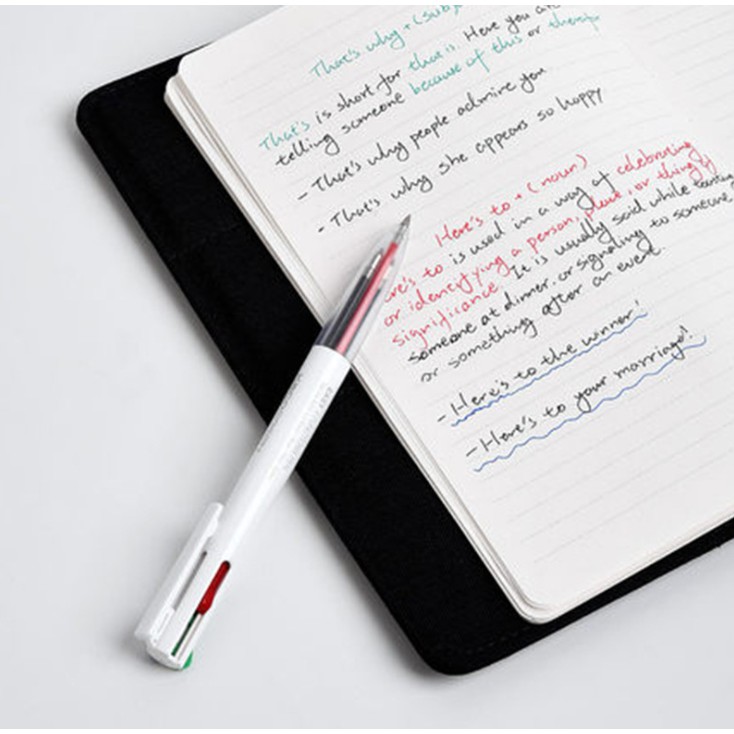 That's why + (sub
That's is short for that is. Here you are
telling someone because of this or
- That's why people admire you
- That's why she appears so happy
Here's to + (noun)
re's to is used in a way of celebrating
or identifying a person, place, or thing
significance. It is usually said while
someone at dinner, or signaling to someone
or something after an event.
- Here's to the winner!
- Here's to your marriage!